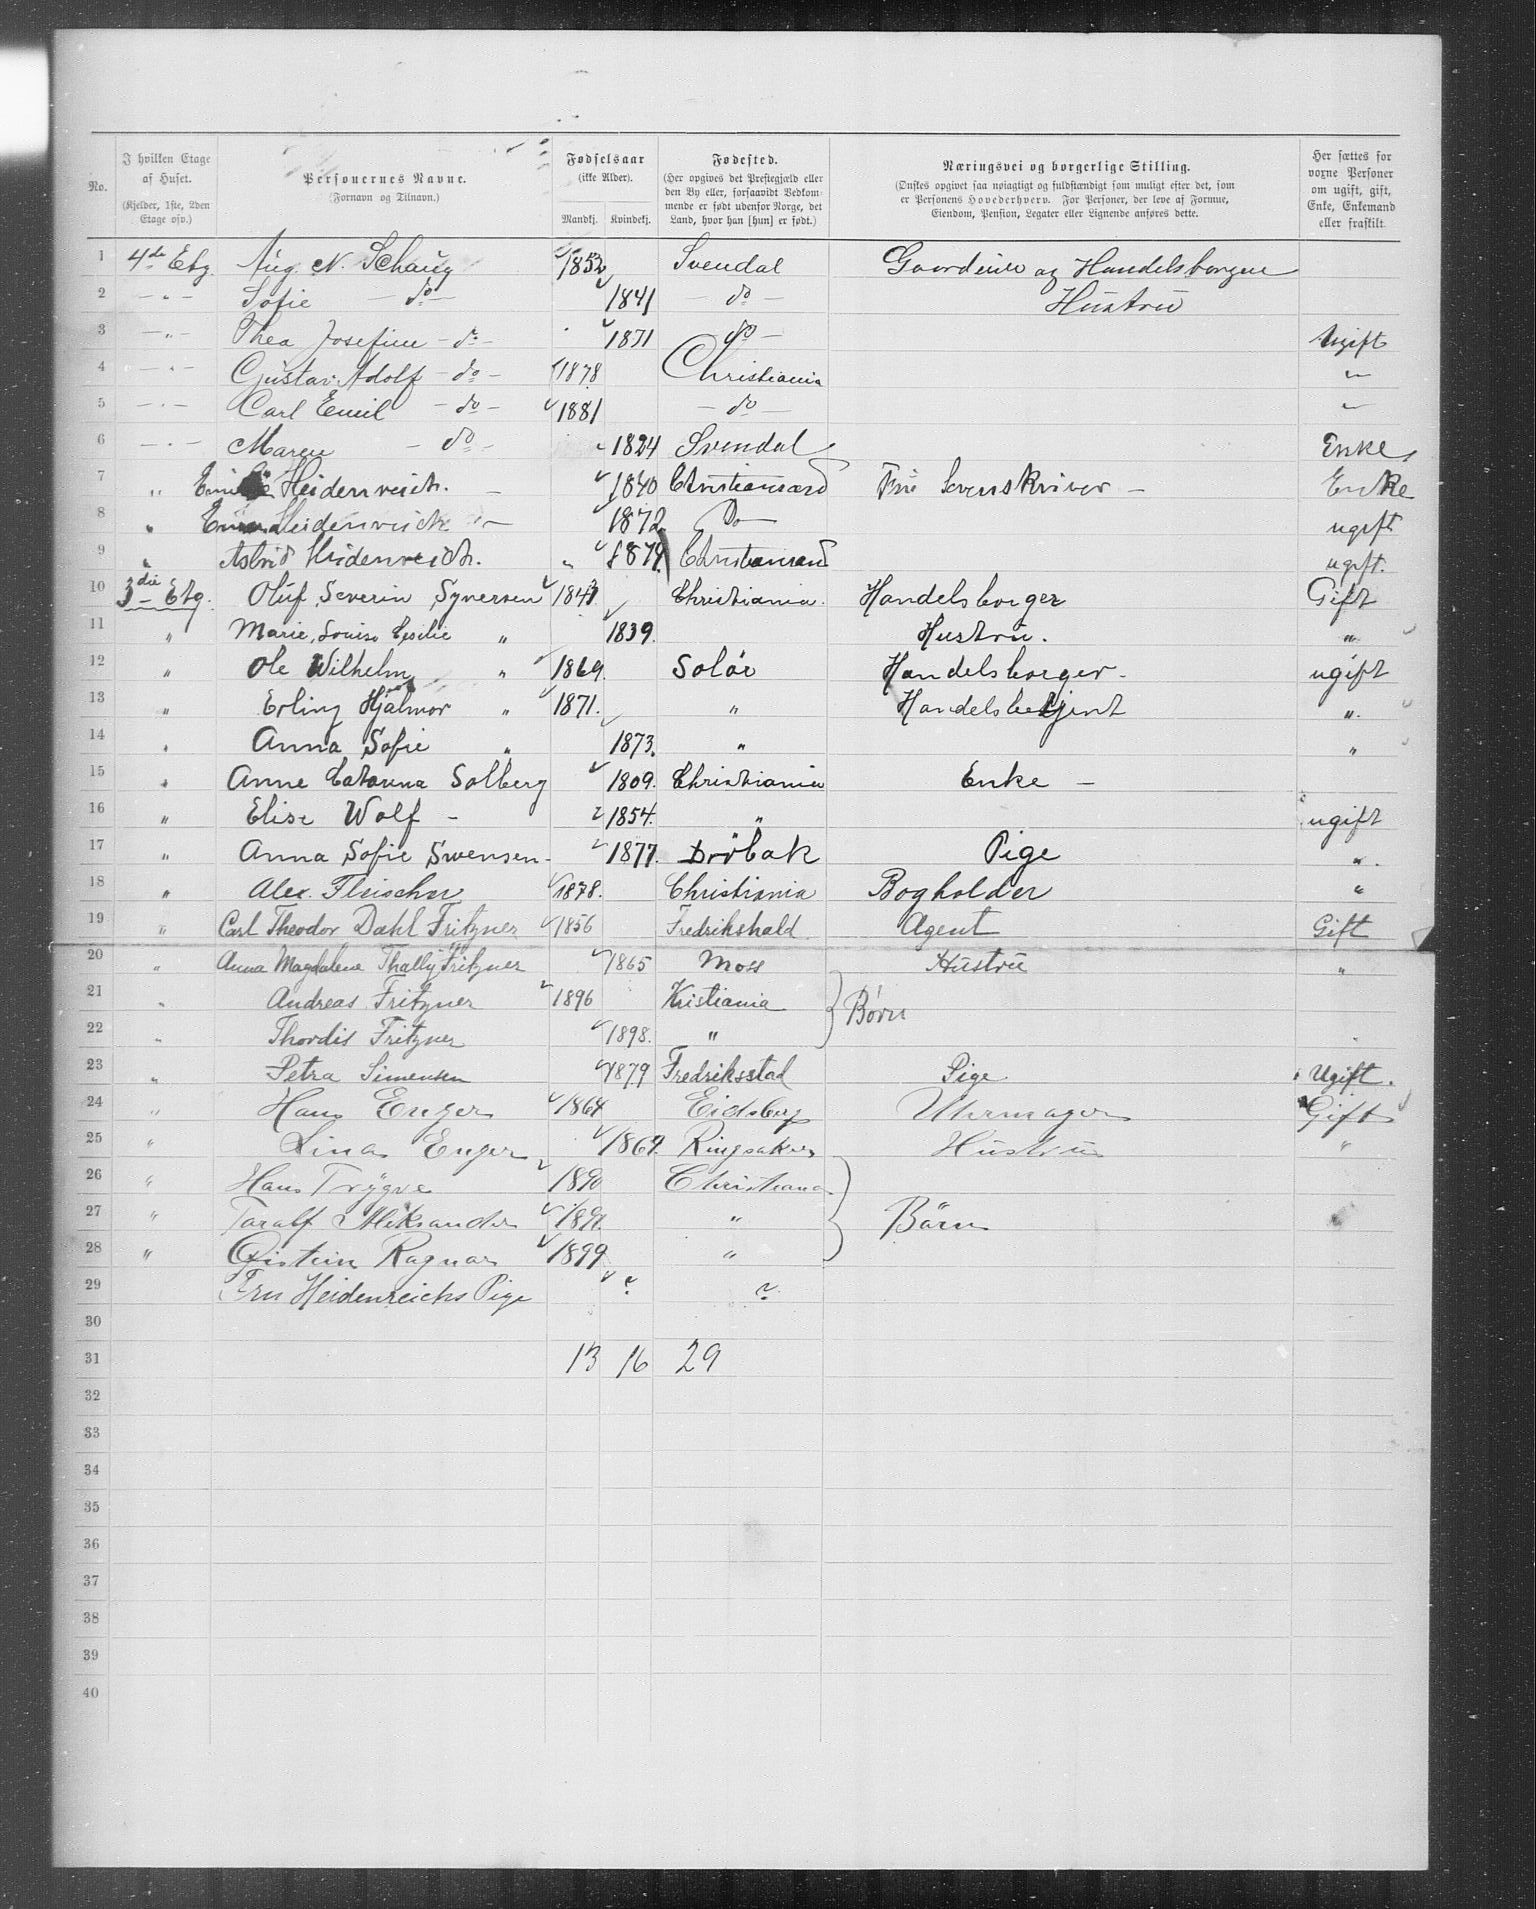 No.	I hvilken Etage af Huset. (Kjelder, 1ste, 2den Etage osv.)	Personernes Navne. (Fornavn og Tilnavn.)	Fødselsaar (ikke Alder). Mandkj. Kvindekj.	Fødested. (Her opgives det Prestegjæld eller den By eller, forsaavidt Vedkommende er født udenfor Norge, det Land, hvor han [hun] er født.)	Næringsvei og borgerlige Stilling. (Ønskes opgivet saa nøiagtigt og fuldstændigt som muligt efter det, som er Personens Hovederhverv. For Personer, der leve af Formue, Eiendom, Pension, Legater eller Lignende anføres dette.	Her sættes for voxne Personer om ugift, gift, Enke, Enkemand eller fraskilt.
1	4de Etg.	Aug. N. Schaug	1852	Svendal	Gaardeier og Handelsborger
2	— " —	Sofie — do —	1841	— do —	Hustru
3	— " —	Thea Josefine — do —	1871	do —	Ugift
4	— " —	Gustav Adolf — do —	1878	Christiania	"
5	— " —	Carl Emil — do —	1881	— do —	"
6	— " —	Maren — do —	1824	Svendal	Enke
7	"	Heidenreich. —	1840	Christiansand	Fru Sorenskriver —	Enke
8	"	Heidenreich —	1872	Do —	ugift
9	"	Astrid Heidenreich.	1879	Christiansand	ugift.
10	3die Etg.	Oluf Severin Syversen	1843	Christiania.	Handelsborger	Gift
11	"	Marie Louise Cesilie "	1839.	Hustru.	"
12	"	Ole Wilhelm "	1869.	Solör	Handelsborger.	ugift
13	"	Erling Hjalmar "	1871.	"	Handelsbetjent	".
14	"	Anna Sofie "	1873.	"	"
15	"	Anne Catarina Solberg	1809.	Christiania	Enke —
16	"	Elise Wolf —	1854.	"	ugift
17	"	Anna Sofie Swensen	1877.	Dröbak	Pige	".
18	"	Alex. Fleischer	1878.	Christiania	Bogholder	"
19	"	Carl Theodor Dahl Fritzner	1856	Fredrikshald	Agent	Gift
20	"	Anna Magdalene Thally Fritzner	1865	Moss	Hustru	"
21	"	Andreas Fritzner	1896	Kristiania	Børn
22	"	Thordis Fritzner	1898.	"
23	"	Petra Simensen	1879	Fredriksstad	Pige	Ugift.
24	"	Hans Enger	1864	Eidsberg	Uhrmager	Gift
25	"	Lina Enger	1864.	Ringsaker	Hustru	"
26	"	Hans Trygve	1890	Christiania
27	"	Taralf Aleksander	1891.	"	Børn
28	"	Øistein Ragnar	1899	"
29	Fru Heidenreichs Pige	?	?
30
31	13	16	29
32
33
34
35
36
37
38
39
40